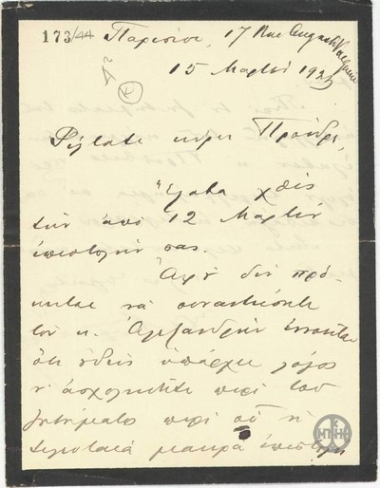 173/44 Παρισίοις, 17 Rue Auguste Vacquerie
15 Μαρτίου
Φίλτατε κύριε Πρόεδρε,
Έλαβα χθές
την από 12 Μαρτίου
επιστολήν σας.
Αφ' ου δεν πρό-
κειται να συναντήσητε
τον κ. Αλεξανδρήν εννοείται
ότι ουδείς υπάρχει λόγος
ν' ασχοληθήτε περί του
ζητήματος περί ού η
τελευταία μακρά επιστολή